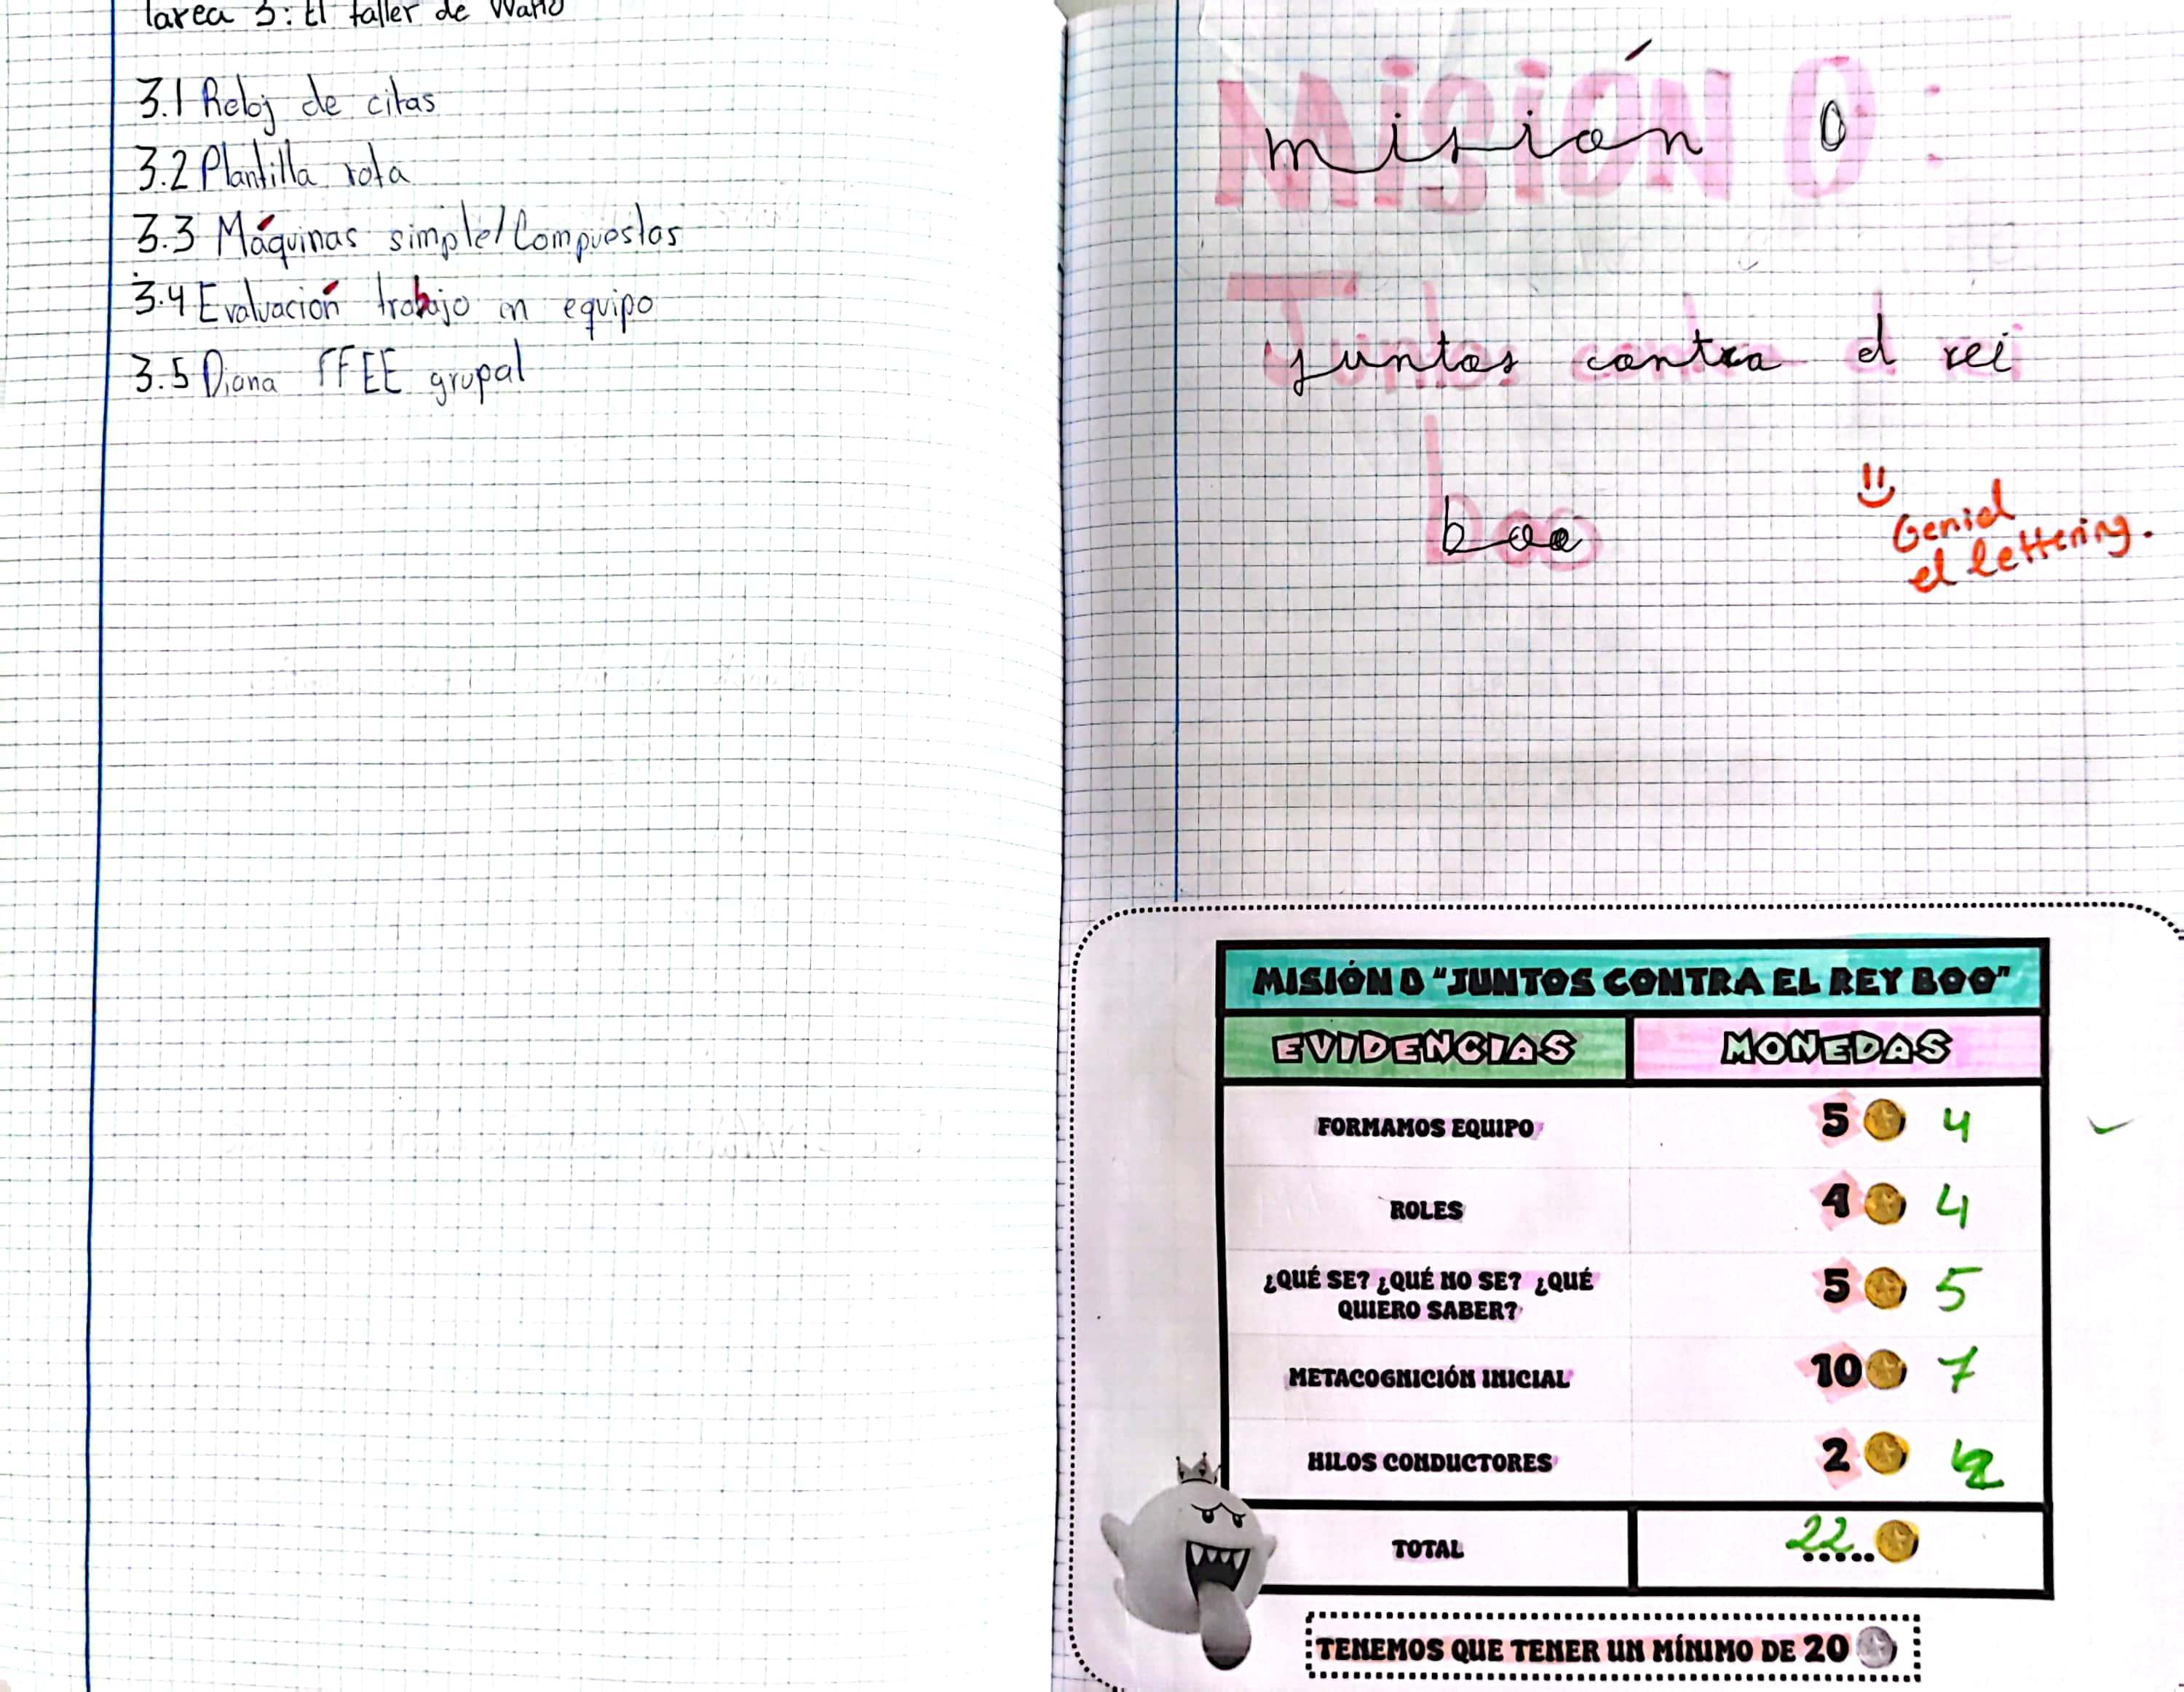 Tarea 3: El taller de Wario
3.1 Reloj de citas
3.2 Plantilla rota
3.3 Máquinas simple/Compuestas
3.4 Evaluación trabajo en equipo
3.5 Diana FFEE grupal
Misión 0:
misión 0
Juntos contra el rei
juntos contra el rei
boo
boo
Genial
el lettering.
MISIÓN 0 "JUNTOS CONTRA EL REY BOO"
EVIDENCIAS MONEDAS
FORMAMOS EQUIPO 5 4
ROLES 4 4
¿QUÉ SE? ¿QUÉ NO SE? ¿QUÉ
QUIERO SABER? 5 5
METACOGNICIÓN INICIAL 10 7
HILOS CONDUCTORES 2 2
TOTAL 22
TENEMOS QUE TENER UN MÍNIMO DE 20